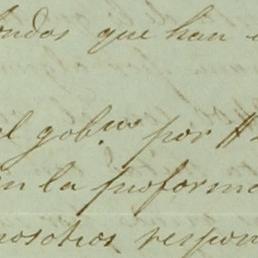 ondos que han
el gob.no por
en la proforma
nosotros respon